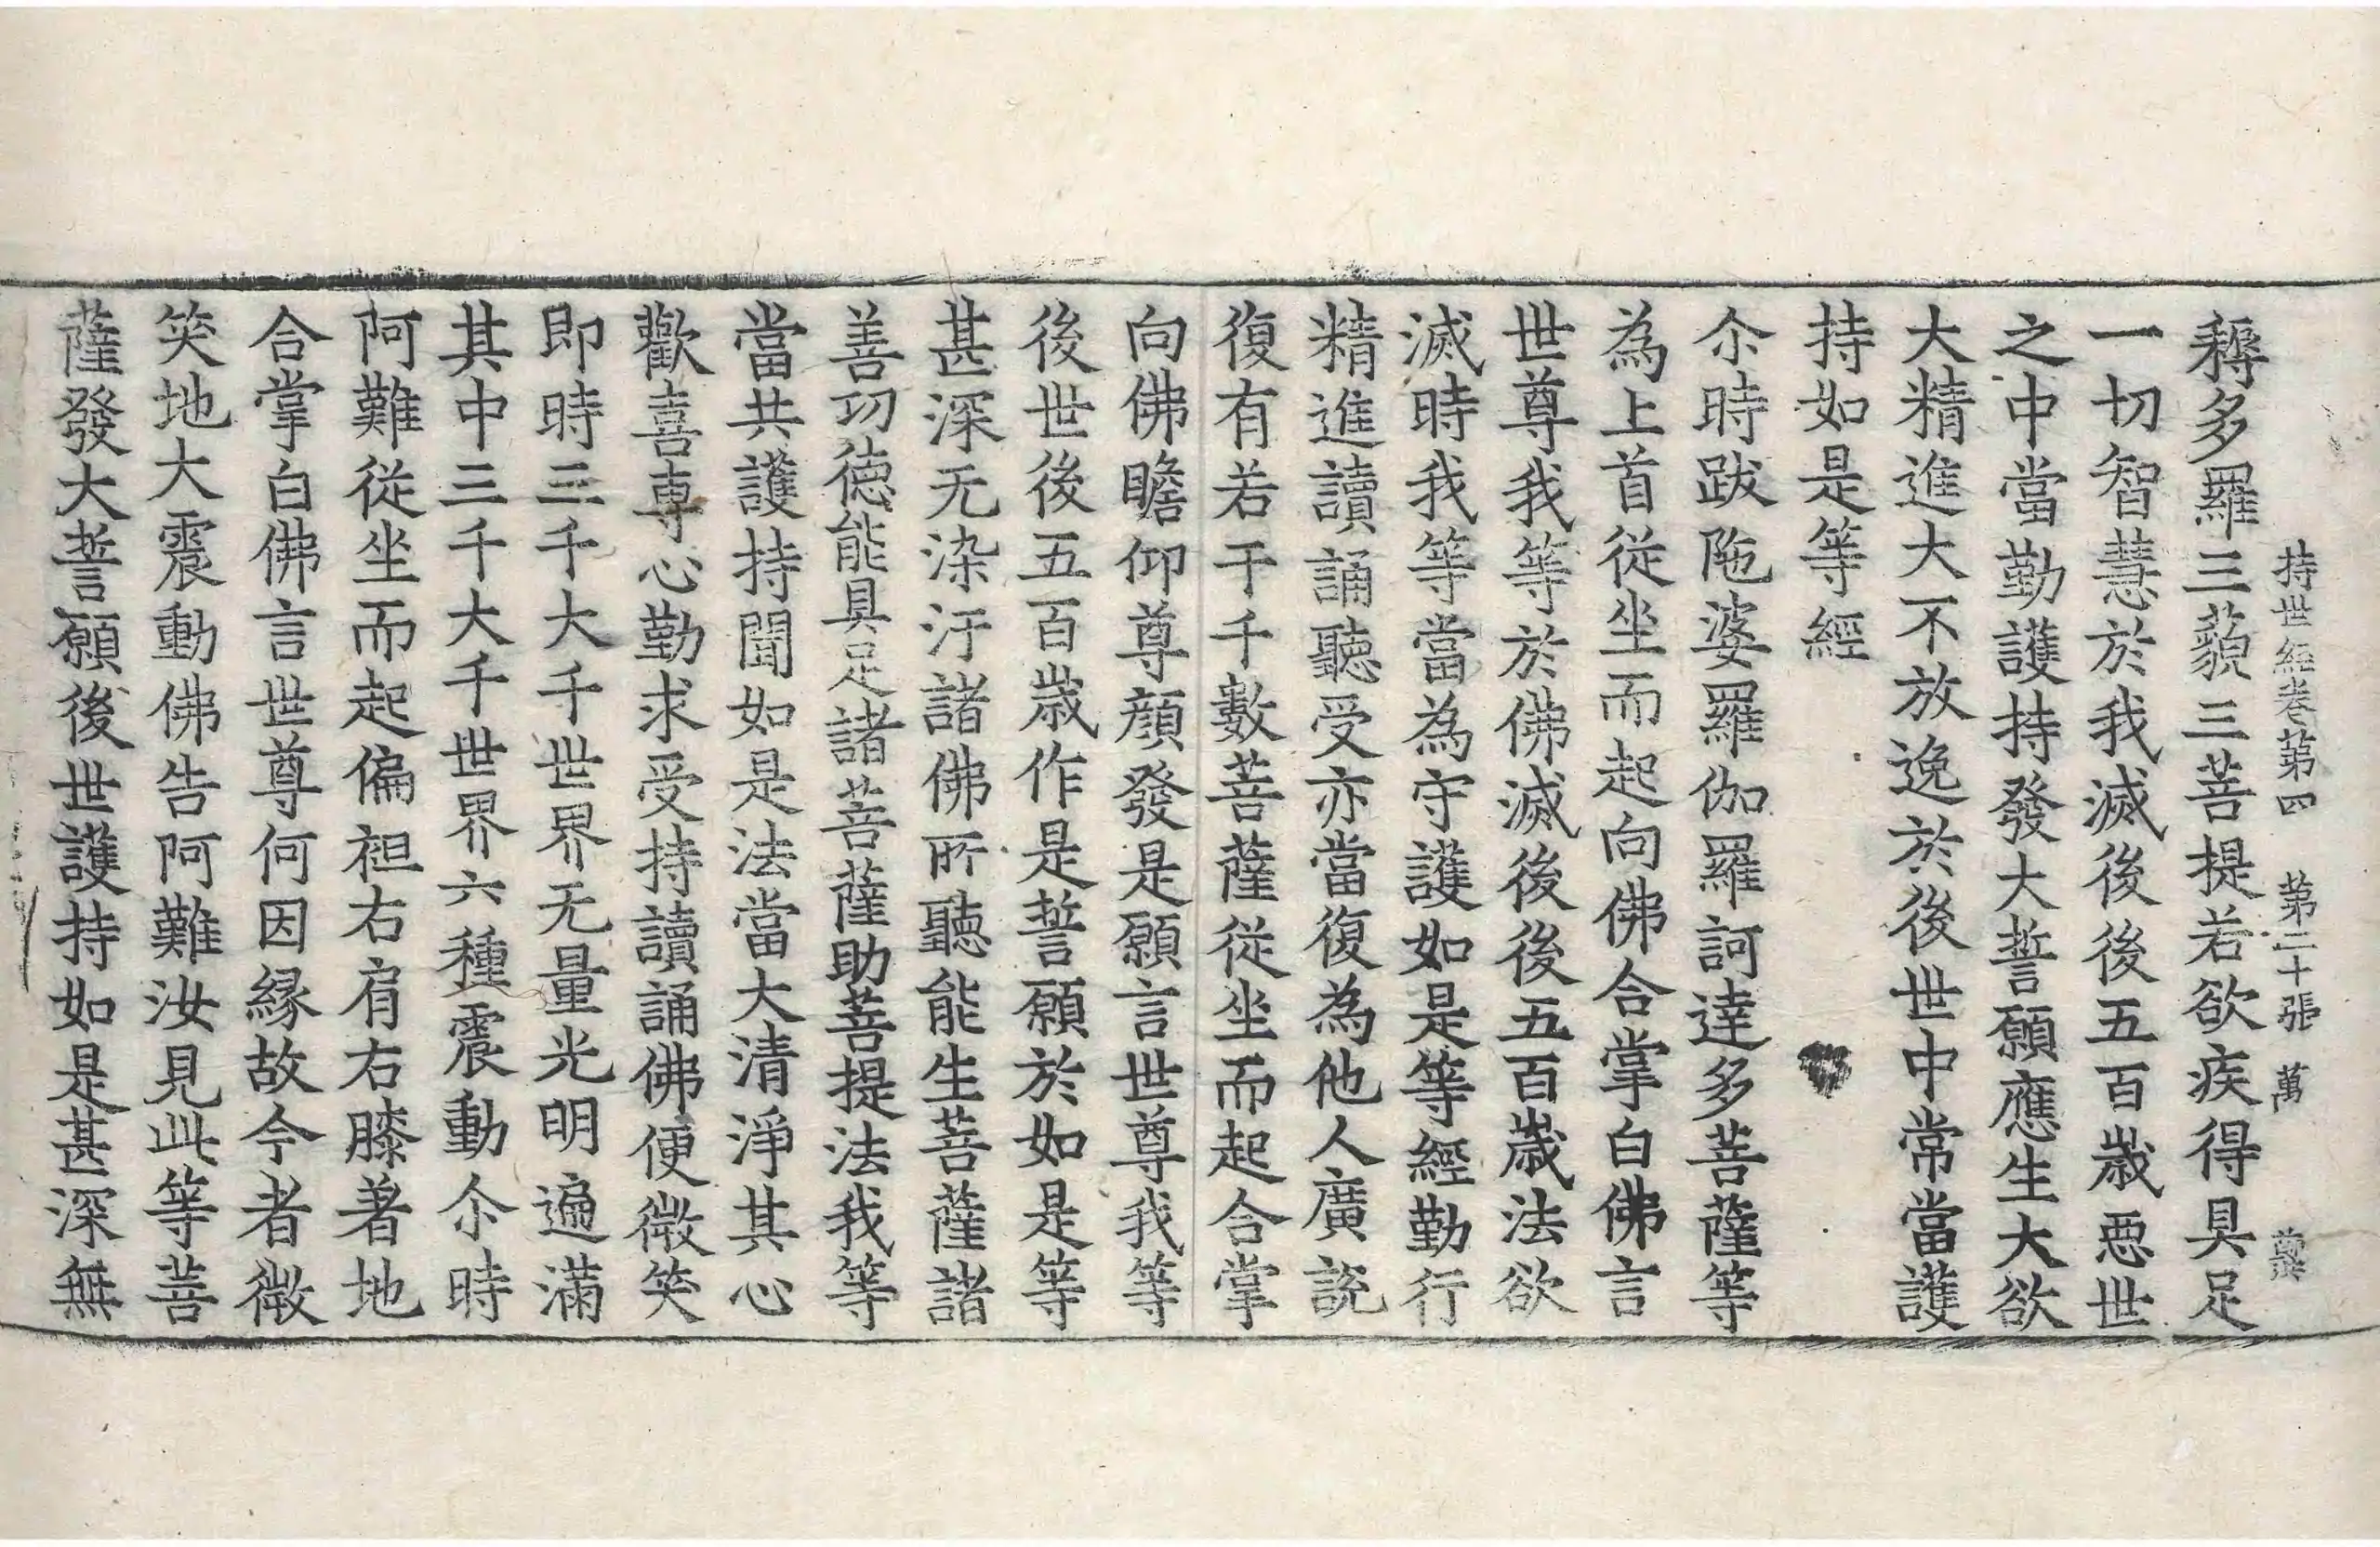 持世經卷第四 第二十張 萬
耨多羅三藐三菩提若欲疾得具足
一切智慧於我滅後後五百歲惡世
之中當勤護持發大誓願應生大欲
大精進大不放逸於後世中常當護
持如是等經
尒時跋陁婆羅伽羅訶達多菩薩等
為上首從坐而起向佛合掌白佛言
世尊我等於佛滅後後五百歲法欲
滅時我等當為守護如是等經勤行
精進讀誦聽受亦當復為他人廣說
復有若干千數菩薩從坐而起合掌
向佛瞻仰尊顔發是願言世尊我等
後世後五百歲作是誓願於如是等
甚深无染汙諸佛所聽能生菩薩諸
善功德能具足諸菩薩助菩提法我等
當共護持聞如是法當大清淨其心
歡喜專心勤求受持讀誦佛便微笑
即時三千大千世界无量光明遍滿
其中三千大千世界六種震動尒時
阿難從坐而起偏袒右肩右膝著地
合掌白佛言世尊何因縁故今者微
笑地大震動佛告阿難汝見此等菩
薩發大誓願後世護持如是甚深無